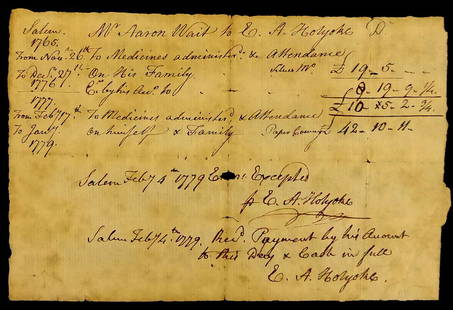 Salem Mr. Aaron Wait to E. A. Holyoke Dr
1765.
From Novr. 26th To Medicines administerd. & Attendance
To Decr. 27th On His Family £ 19 - 5 - -
1776 Cr. by his Acct. to 8 - 19 - 9 - 3/4
£ 10 - 5 - 2 - 3/4
1777.
From Feby 17th To Medicines administerd. & Attendance
To Jany. on himself & Family Paper Currency 42 - 10 - 11 -
1779.
Salem Feby 4th 1779 Errors Excepted
pr E. A. Holyoke
Salem Feby 4th 1779. Recd. Payment by his Account
to this Day & Cash in full
E. A. Holyoke.